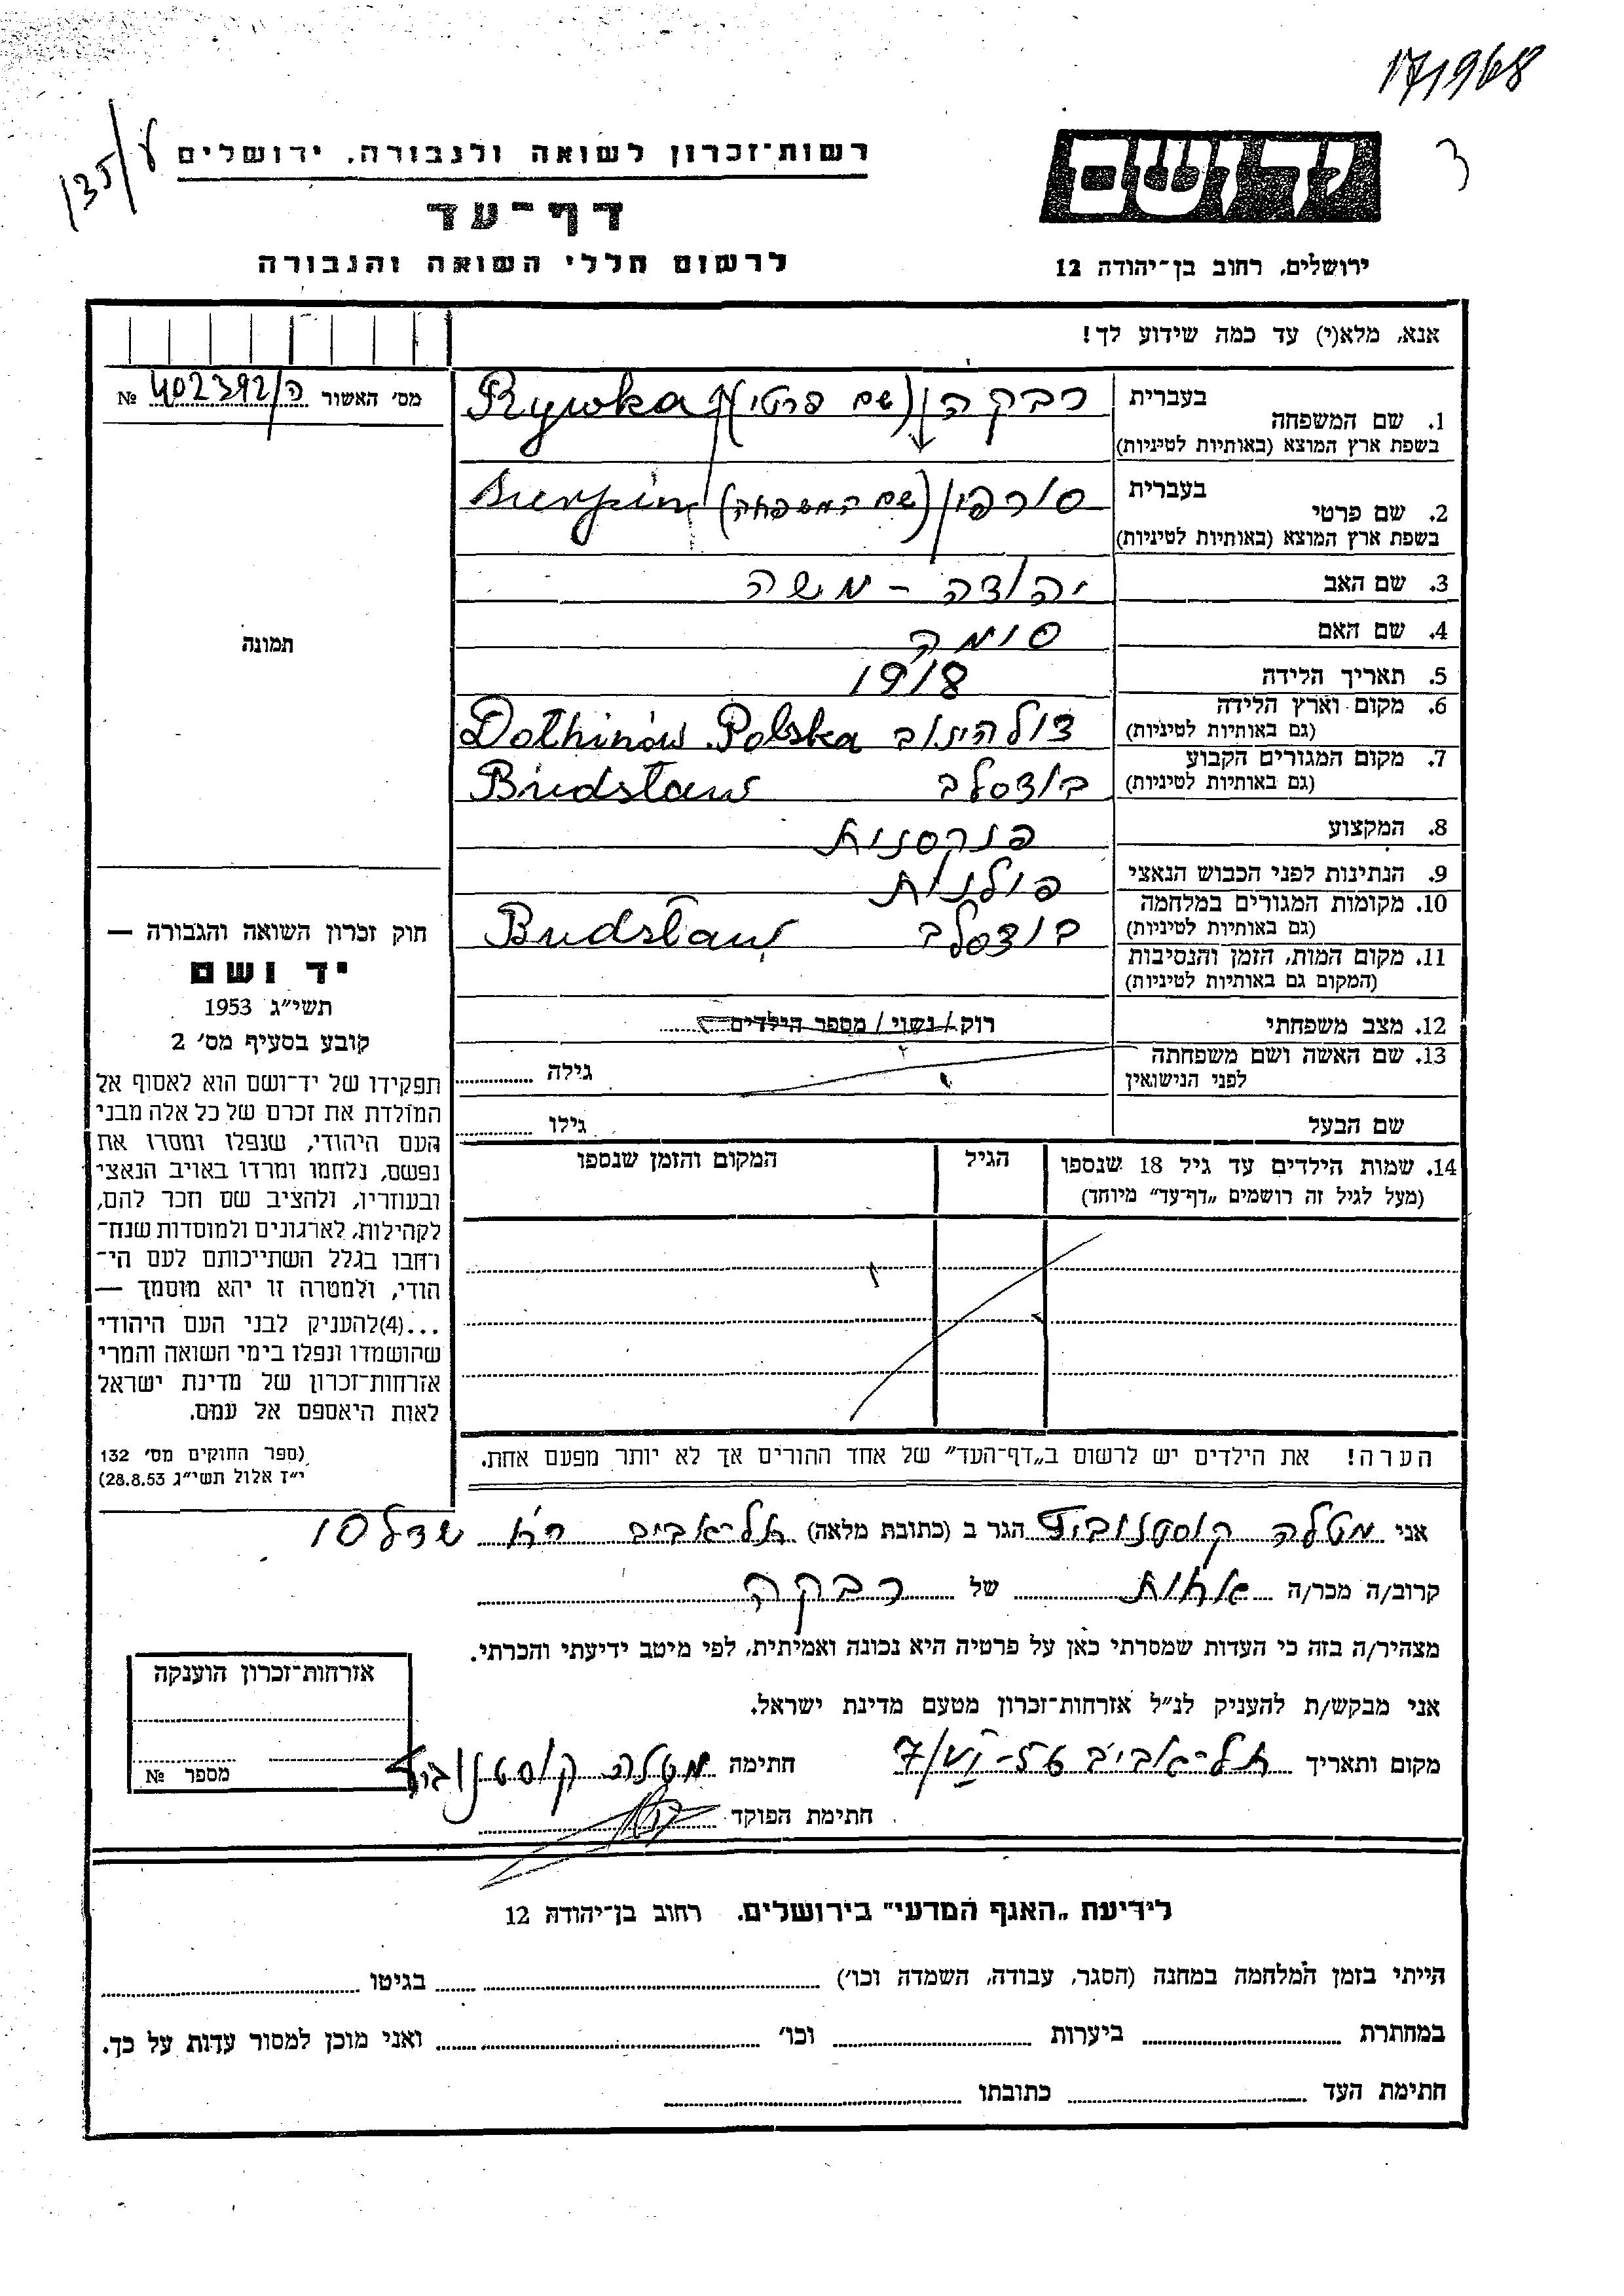 171968
135/ע
רשות־זכרון לשואה ולגבורה, ירושלים
יד ושם
דף־עד
לרשום חללי השואה והגבורה
ירושלים, רחוב בן־יהודה 12
אנא, מלא(י) עד כמה שידוע לך!
מס׳ האשור ה/402392 №
1. שם המשפחה
בעברית רבקה (שם פרטי) Rywka
בשפת ארץ המוצא (באותיות לטיניות)
2. שם פרטי
בעברית סורפין (שם המשפחה) Surpin
בשפת ארץ המוצא (באותיות לטיניות)
3. שם האב יהודה - משה
4. שם האם סימה
5. תאריך הלידה 1918
6. מקום וארץ הלידה דולהינוב Dolhinów Polska
(גם באותיות לטיניות)
7. מקום המגורים הקבוע בודסלב Budsław
(גם באותיות לטיניות)
8. המקצוע פנקסנית
9. הנתינות לפני הכבוש הנאצי פולנית
10. מקומות המגורים במלחמה בודסלב Budsław
(גם באותיות לטיניות)
11. מקום המות, הזמן והנסיבות
(המקום גם באותיות לטיניות)
12. מצב משפחתי רוק / נשוי / מספר הילדים
13. שם האשה ושם משפחתה גילה
לפני הנישואין
שם הבעל גילו
14. שמות הילדים עד גיל 18 שנספו הגיל המקום והזמן שנספו
(מעל לגיל זה רושמים „דף־עד״ מיוחד)
הערה! את הילדים יש לרשום ב„דף־העד״ של אחד ההורים אך לא יותר מפעם אחת.
תמונה
חוק זכרון השואה והגבורה —
יד ושם
תשי״ג 1953
קובע בסעיף מס׳ 2
תפקידו של יד־ושם הוא לאסוף אל
המולדת את זכרם של כל אלה מבני
העם היהודי, שנפלו ומסרו את
נפשם, נלחמו ומרדו באויב הנאצי
ובעוזריו, ולהציב שם וזכר להם,
לקהילות, לארגונים ולמוסדות שנח־
רבו בגלל השתייכותם לעם הי־
הודי, ולמטרה זו יהא מוסמך —
...(4)להעניק לבני העם היהודי
שהושמדו ונפלו בימי השואה והמרי
אזרחות־זכרון של מדינת ישראל
לאות היאספם אל עמם.
(ספר החוקים מס׳ 132
י״ז אלול תשי״ג 28.8.53)
אני מטלה קוסטנוביץ הגר ב (כתובת מלאה) תל־אביב שדל 10
קרוב/ה מכר/ה אחות של רבקה
מצהיר/ה בזה כי העדות שמסרתי כאן על פרטיה היא נכונה ואמיתית, לפי מיטב ידיעתי והכרתי.
אני מבקש/ת להעניק לנ״ל אזרחות־זכרון מטעם מדינת ישראל.
מקום ותאריך תל־אביב 7/VI-56 חתימה מטלה קוסטנוביץ
חתימת הפוקד
אזרחות־זכרון הוענקה
מספר №
לידיעת „האגף המדעי״ בירושלים. רחוב בן־יהודה 12
הייתי בזמן המלחמה במחנה (הסגר, עבודה, השמדה וכו׳) בגיטו
במחתרת ביערות וכו׳ ואני מוכן למסור עדות על כך.
חתימת העד כתובתו